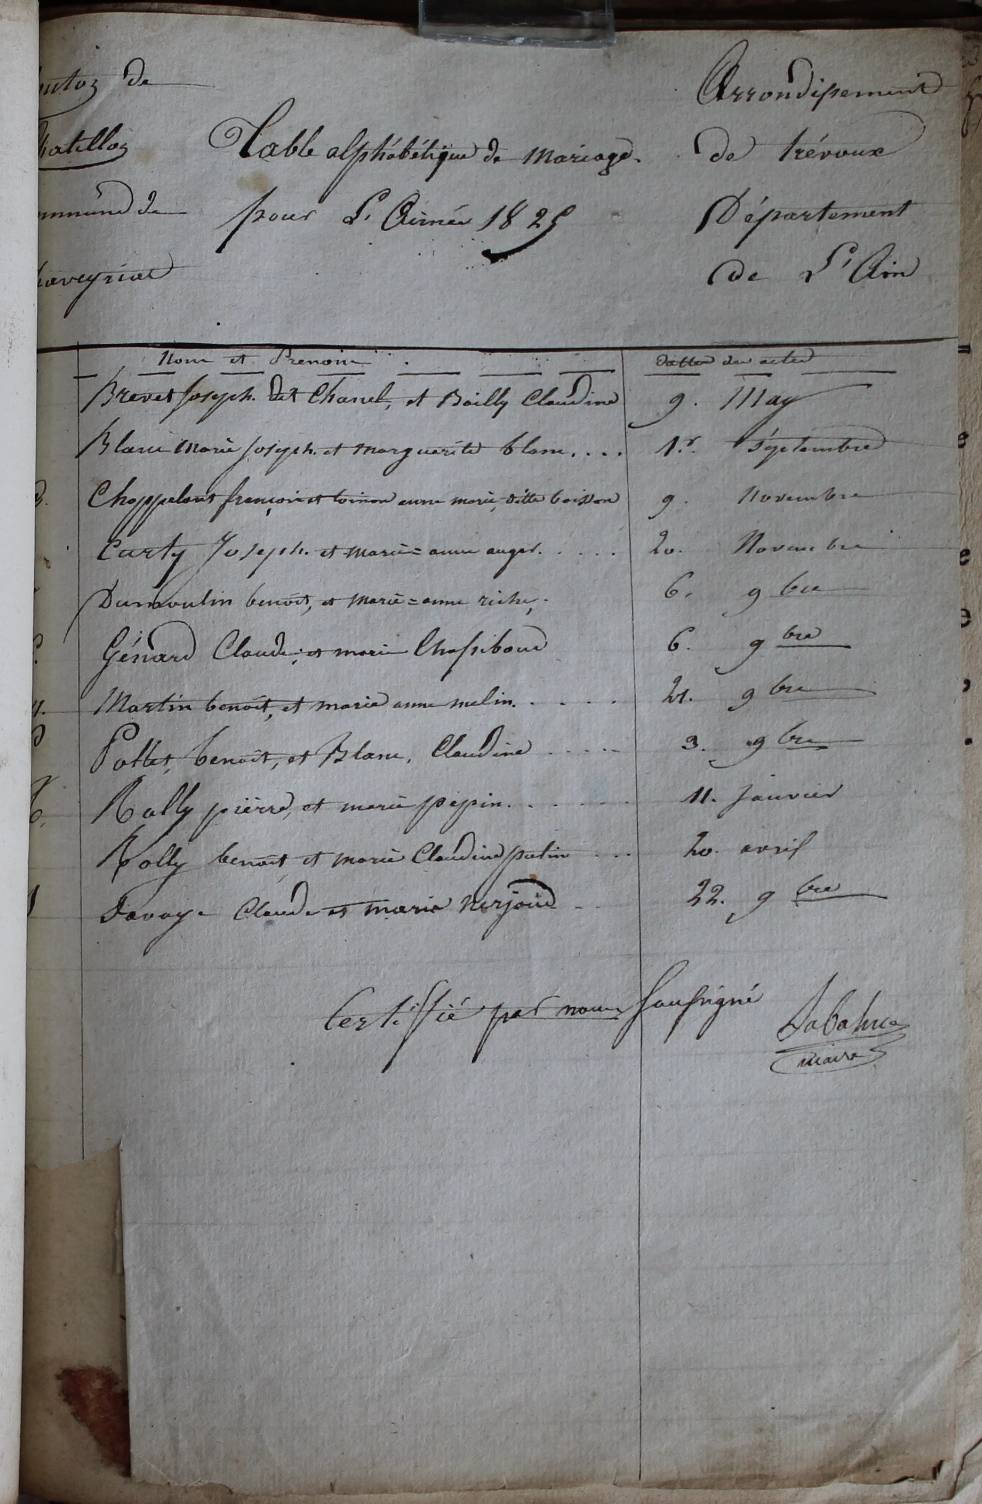 de
Chatillon
Commune de
Chaveyriat
Table alphabétique de mariage.
pour L'Année 1825
Arrondissement
de trévoux
Département
de L'Ain
Nom et Prenom
datte des actes
Brevet Joseph dit Chanel, et Bailly Claudine 9. May
Blanc Marie Joseph et marguerite blanc.... 1er. Septembre
françois et anne marie ditte boisson 9. Novembre
Carty Joseph et marie=anne auger..... 20. Novembre
Dumoulin benoit, et marie=anne riche. 6. 9bre
Génard Claude, et marie 6. 9bre
Martin benoit, et marie anne melin..... 21. 9bre
Pottet, benoit, et Blanc, Claudine ..... 3. 9bre
Rolly pierre, et marie pepin...... 11. janvier
Rolly benoit et marie Claudine putin ... 20. avril
Savoye Claude et marie nerjoud .. 22. 9bre
Certifié par nous soussigné
maire